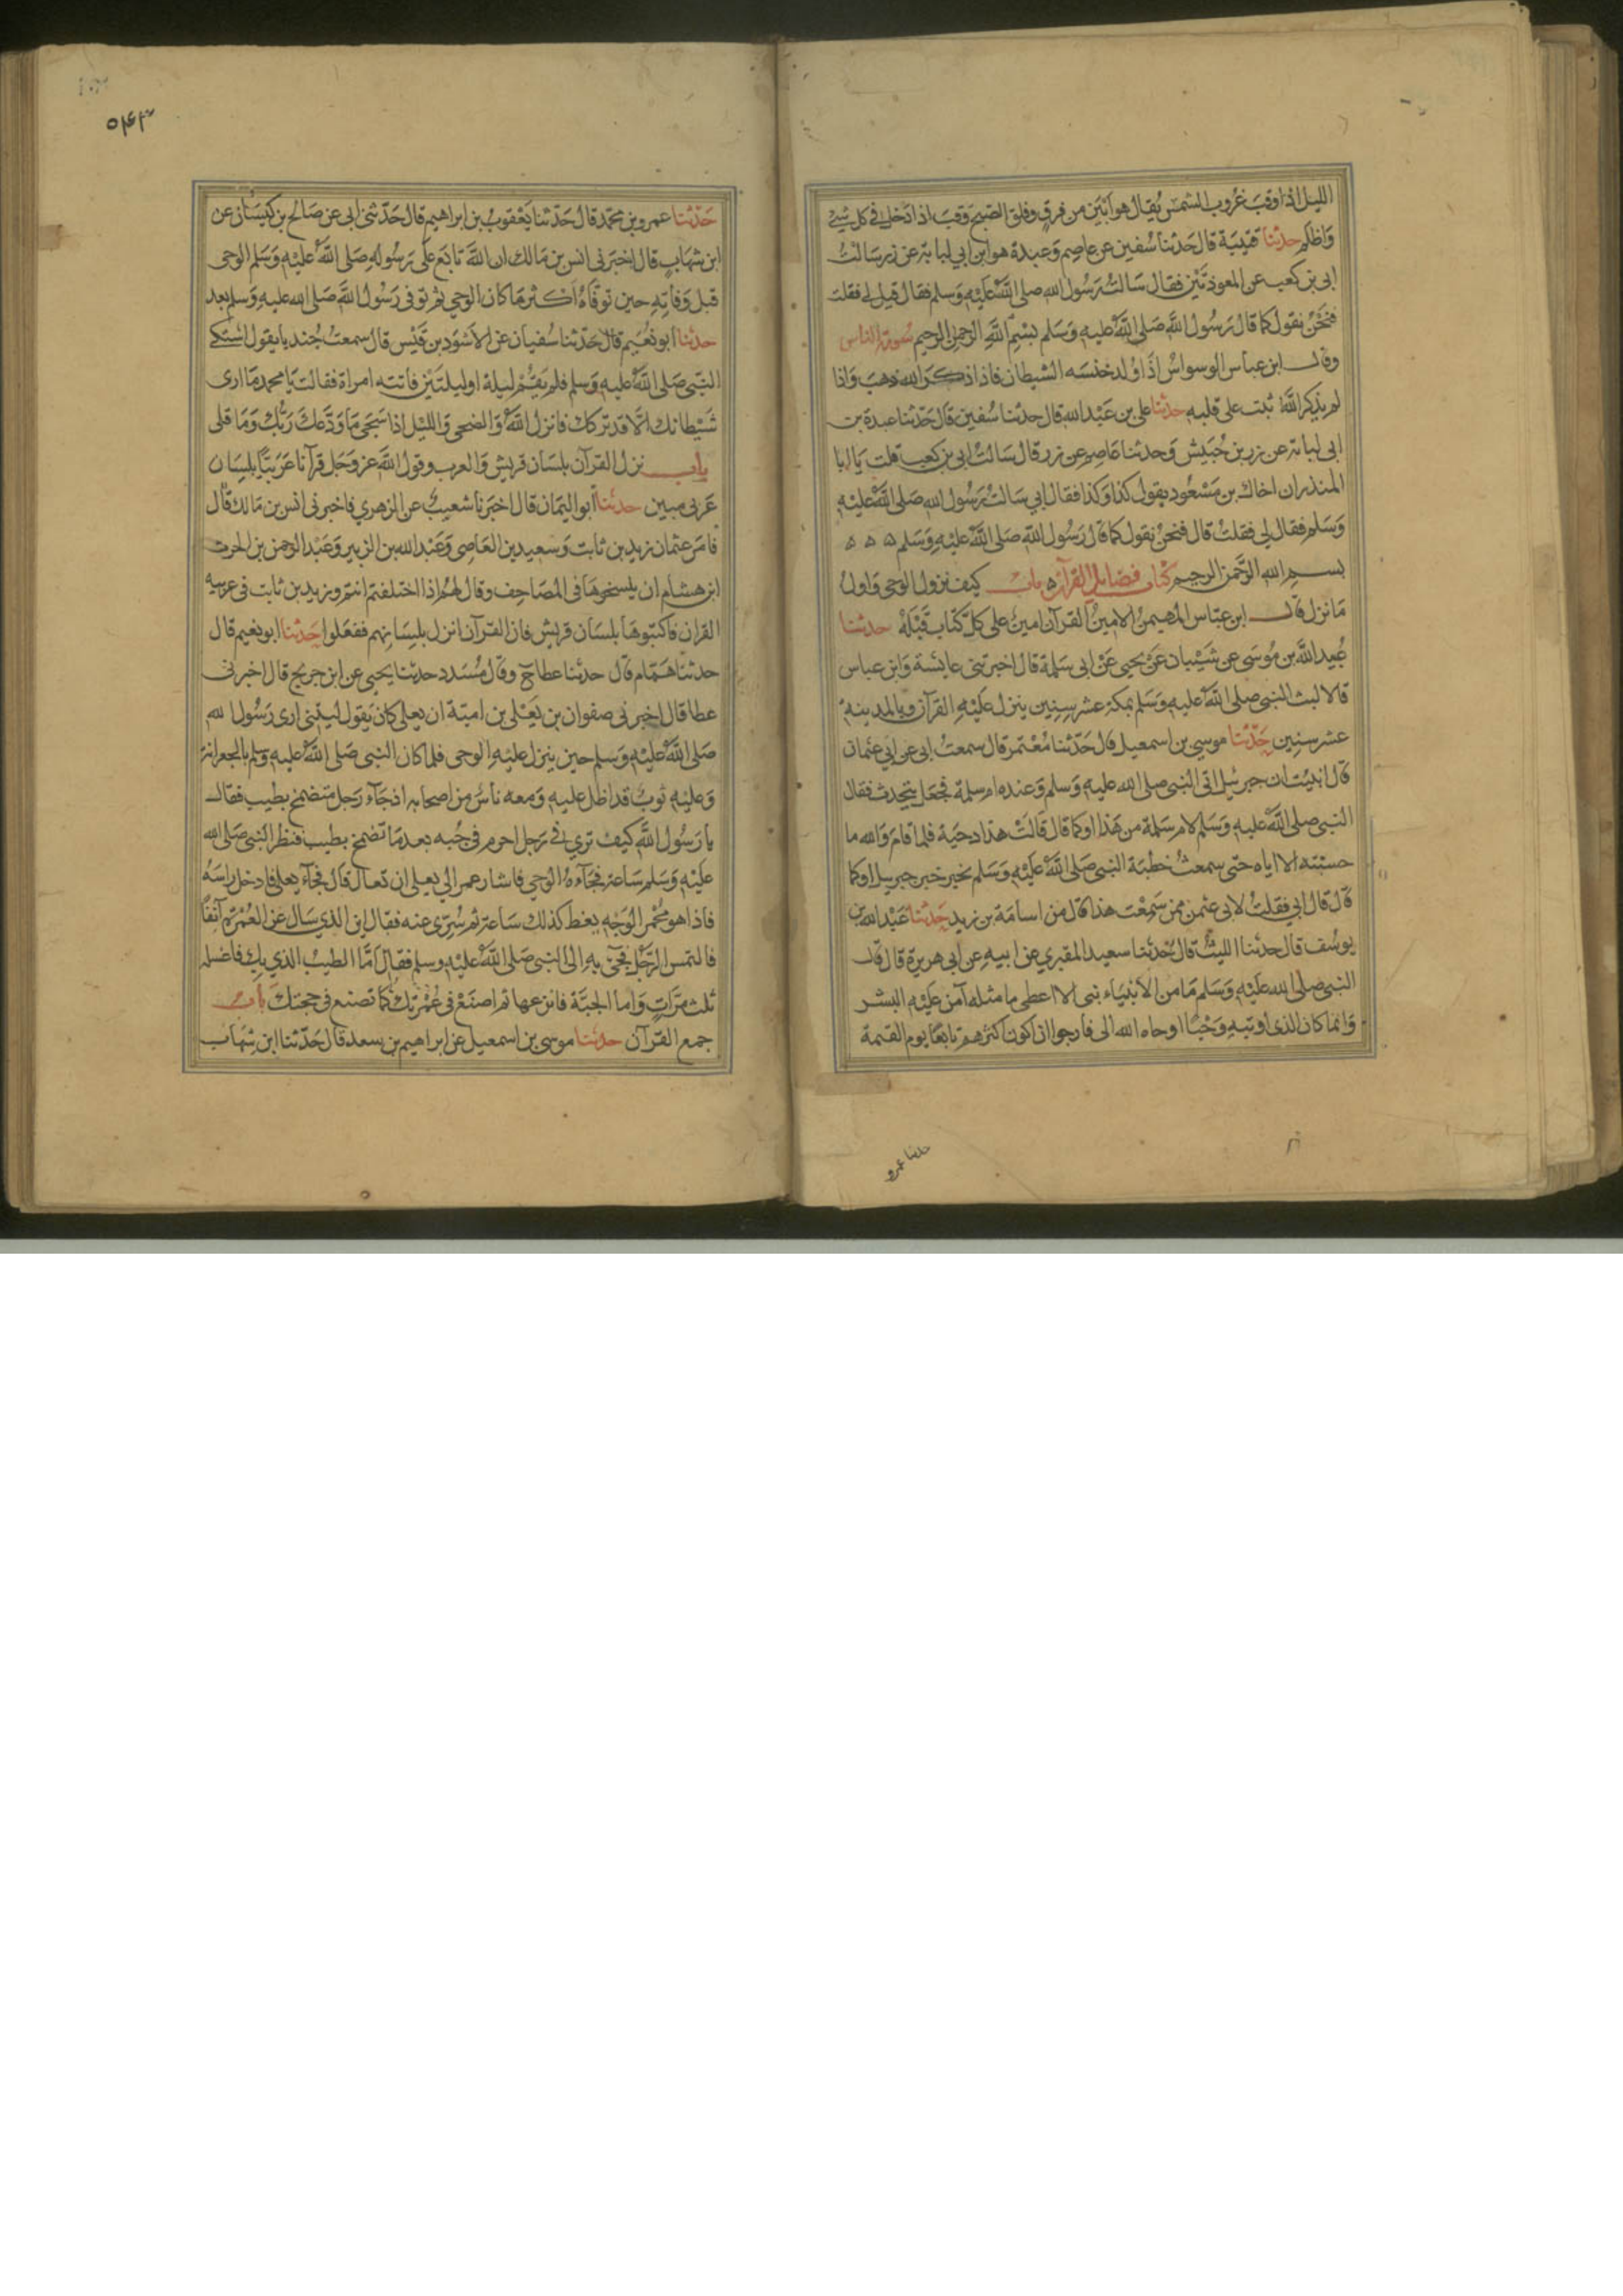 الليل اذا وقب غروب الشمس يقال هو ابين من فرق وفلق الصبح وقب اذا دخل في كل شيء
واظلم حدثنا قتيبة قال حدثنا سفين عن عاصم وعبدة هو ابن ابي لبابة عن زر سالت
ابي بن كعب عن المعوذتين فقال سالت رسول الله صلى الله عليه وسلم فقال قيل لي فقلت
فنحن نقول كما قال رسول الله صلى الله عليه وسلم بسم الله الرحمن الرحيم سورة الناس
وقال ابن عباس الوسواس اذا ولد خنسه الشيطان فاذا ذكر الله ذهب واذا
لم يذكر الله ثبت على قلبه حدثنا علي بن عبد الله قال حدثنا سفين قال حدثنا عبدة بن
ابي لبابة عن زر بن حبيش وحدثنا عاصم عن زر قال سالت ابي بن كعب قلت يا ابا
المنذر ان اخاك بن مسعود يقول كذا وكذا فقال ابي سالت رسول الله صلى الله عليه
وسلم فقال لي فقلت قال فنحن نقول كما قال رسول الله صلى الله عليه وسلم ه ه ه
بسم الله الرحمن الرحيم كتاب فضايل القرآن ه باب كيف نزول الوحي واول
ما نزل قال ابن عباس المهيمن الامين القرآن امين على كل كتاب قبله حدثنا
عبيد الله بن موسى عن شيبان عن يحيى عن ابي سلمة قال اخبرتني عايشة وابن عباس
قالا لبث النبي صلى الله عليه وسلم بمكة عشر سنين ينزل عليه القرآن وبالمدينة
عشر سنين حدثنا موسى بن اسمعيل قال حدثنا معتمر قال سمعت ابي عن ابي عثمان
قال انبيت ان جبرئيل اتى النبي صلى الله عليه وسلم وعنده ام سلمة فجعل يتحدث فقال
النبي صلى الله عليه وسلم لام سلمة من هذا او كما قال قالت هذا دحية فلما قام والله ما
حسبته الا اياه حتى سمعت خطبة النبي صلى الله عليه وسلم بخبر خبر جبريل او كما
قال قال ابي فقلت لابي عثمن ممن سمعت هذا قال من اسامة بن زيد حدثنا عبد الله بن
يوسف قال حدثنا الليث قال حدثنا سعيد المقبري عن ابيه عن ابي هريرة قال قال
النبي صلى الله عليه وسلم ما من الانبياء نبي الا اعطي ما مثله آمن عليه البشر
وانما كان الذي اوتيه وحيا اوحاه الله الي فارجوا ان اكون اكثرهم تابعا يوم القيمة
حدثنا عمرو
حدثنا عمرو بن محمد قال حدثنا يعقوب بن ابراهيم قال حدثني ابي عن صالح بن كيسان عن
ابن شهاب قال اخبرني انس بن مالك ان الله تابع على رسوله صلى الله عليه وسلم الوحي
قبل وفاته حين توفاه اكثر ما كان الوحي ثم توفي رسول الله صلى الله عليه وسلم بعد
حدثنا ابو نعيم قال حدثنا سفيان عن الاسود بن قيس قال سمعت جندبا يقول اشتكى
النبي صلى الله عليه وسلم فلم يقم ليلة او ليلتين فاتته امراة فقالت يا محمد ما ارى
شيطانك الا قد تركك فانزل الله والضحى والليل اذا سجى ما ودعك ربك وما قلى
باب نزل القرآن بلسان قريش والعرب وقول الله عز وجل قرآنا عربيا بلسان
عربي مبين حدثنا ابو اليمان قال اخبرنا شعيب عن الزهري فاخبرني انس بن مالك قال
فامر عثمان زيد بن ثابت وسعيد بن العاصي وعبد الله بن الزبير وعبد الرحمن بن الحرث
ابن هشام ان ينسخوها في المصاحف وقال لهم اذا اختلفتم انتم وزيد بن ثابت في عربية
القران فاكتبوها بلسان قريش فان القرآن انزل بلسانهم ففعلوا حدثنا ابو نعيم قال
حدثنا همام قال حدثنا عطا ح وقال مسدد حدثنا يحيى عن ابن جريج قال اخبرني
عطا قال اخبرني صفوان بن يعلى بن امية ان يعلى كان يقول ليتني ارى رسول الله
صلى الله عليه وسلم حين ينزل عليه الوحي فلما كان النبي صلى الله عليه وسلم بالجعرانة
وعليه ثوب قد اظل عليه ومعه ناس من اصحابه اذ جآء رجل متضمخ بطيب فقال
يا رسول الله كيف ترى في رجل احرم في جبه بعد ما تضمخ بطيب فنظر النبي صلى الله
عليه وسلم ساعة فجآءه الوحي فاشار عمر الي يعلى ان تعال قال فجآء يعلى فادخل راسه
فاذا هو محمر الوجه يغط كذلك ساعة ثم سري عنه فقال اين الذي سال عن العمرة آنفا
فالتمس الرجل فجئ به الى النبي صلى الله عليه وسلم فقال اما الطيب الذي بك فاغسله
ثلث مرات واما الجبة فانزعها ثم اصنع في عمرتك كما تصنع في حجتك باب
جمع القرآن حدثنا موسى بن اسمعيل عن ابراهيم بن سعد قال حدثنا ابن شهاب